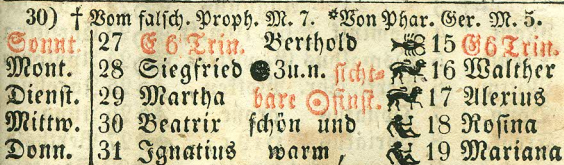 30) † Vom falsch. Proph. M. 7. *Von Phar. Ger. M. 5.
Sonnt. 27 E 6 Trin. Berthold 15 E 6 Trin.
Mont. 28 Siegfried ● 3 u. n. sicht- 16 Walther
Dienst. 29 Martha bare ☉finst. 17 Alexius
Mittw. 30 Beatrix schön und 18 Rosina
Donn. 31 Ignatius warm, 19 Mariana